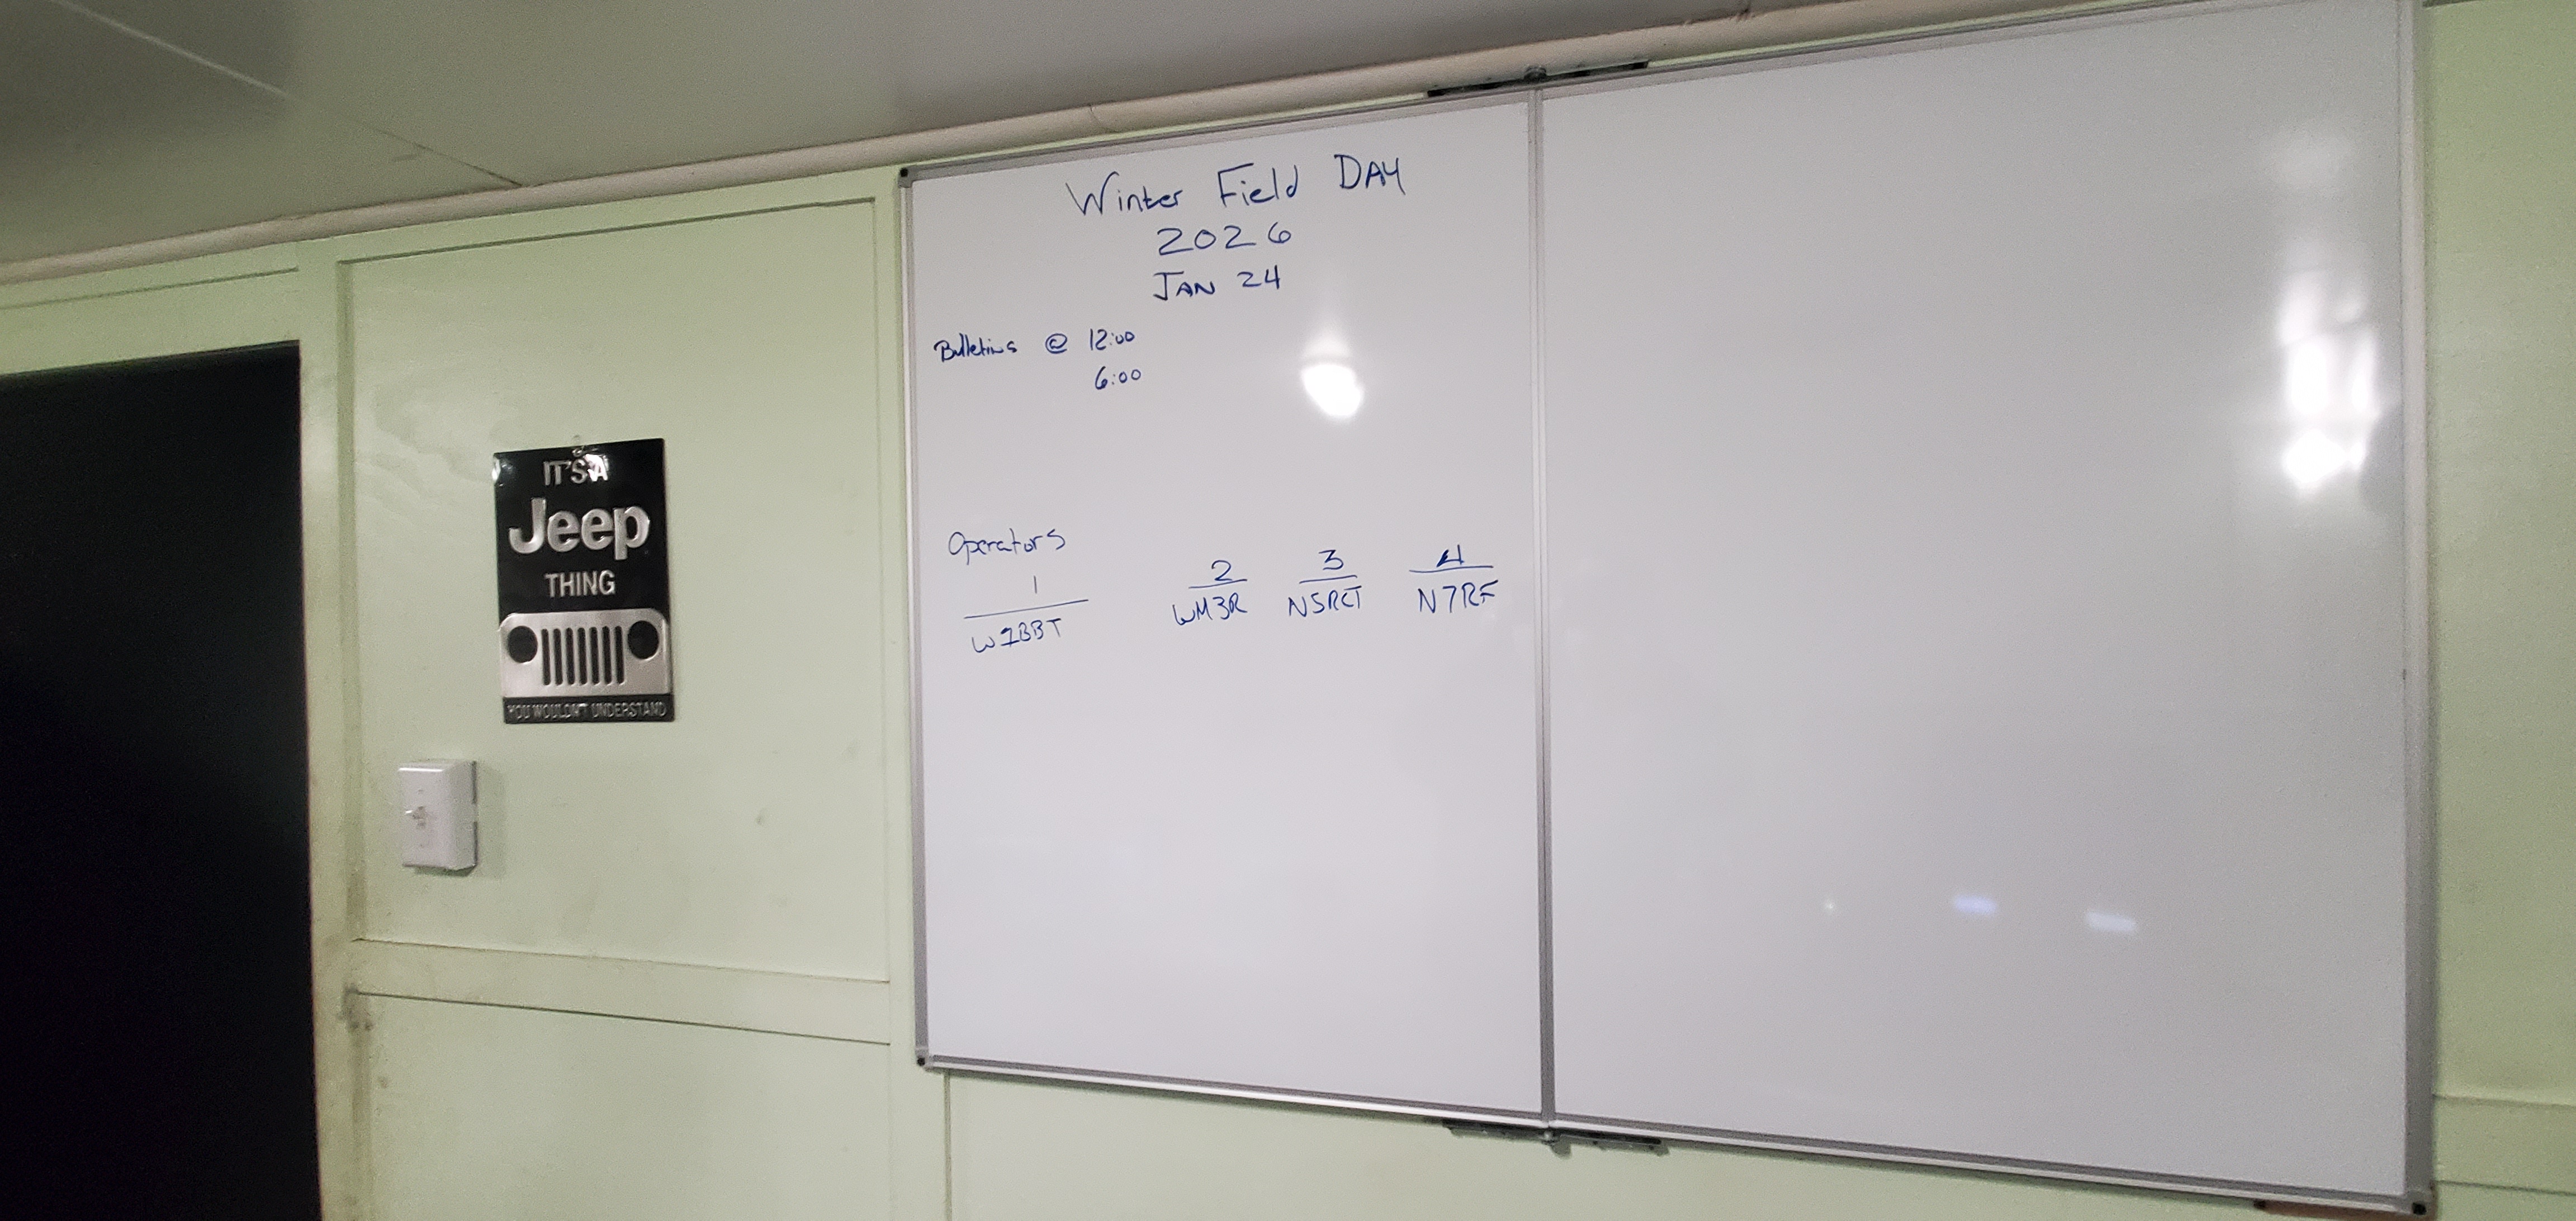 Winter Field DAY
2026
JAN 24
Bulletins @ 12:00
6:00
Operators
1 2 3 4
W1BBT WM3R N5RCT N7RF
IT'S A
Jeep
THING
YOU WOULDN'T UNDERSTAND